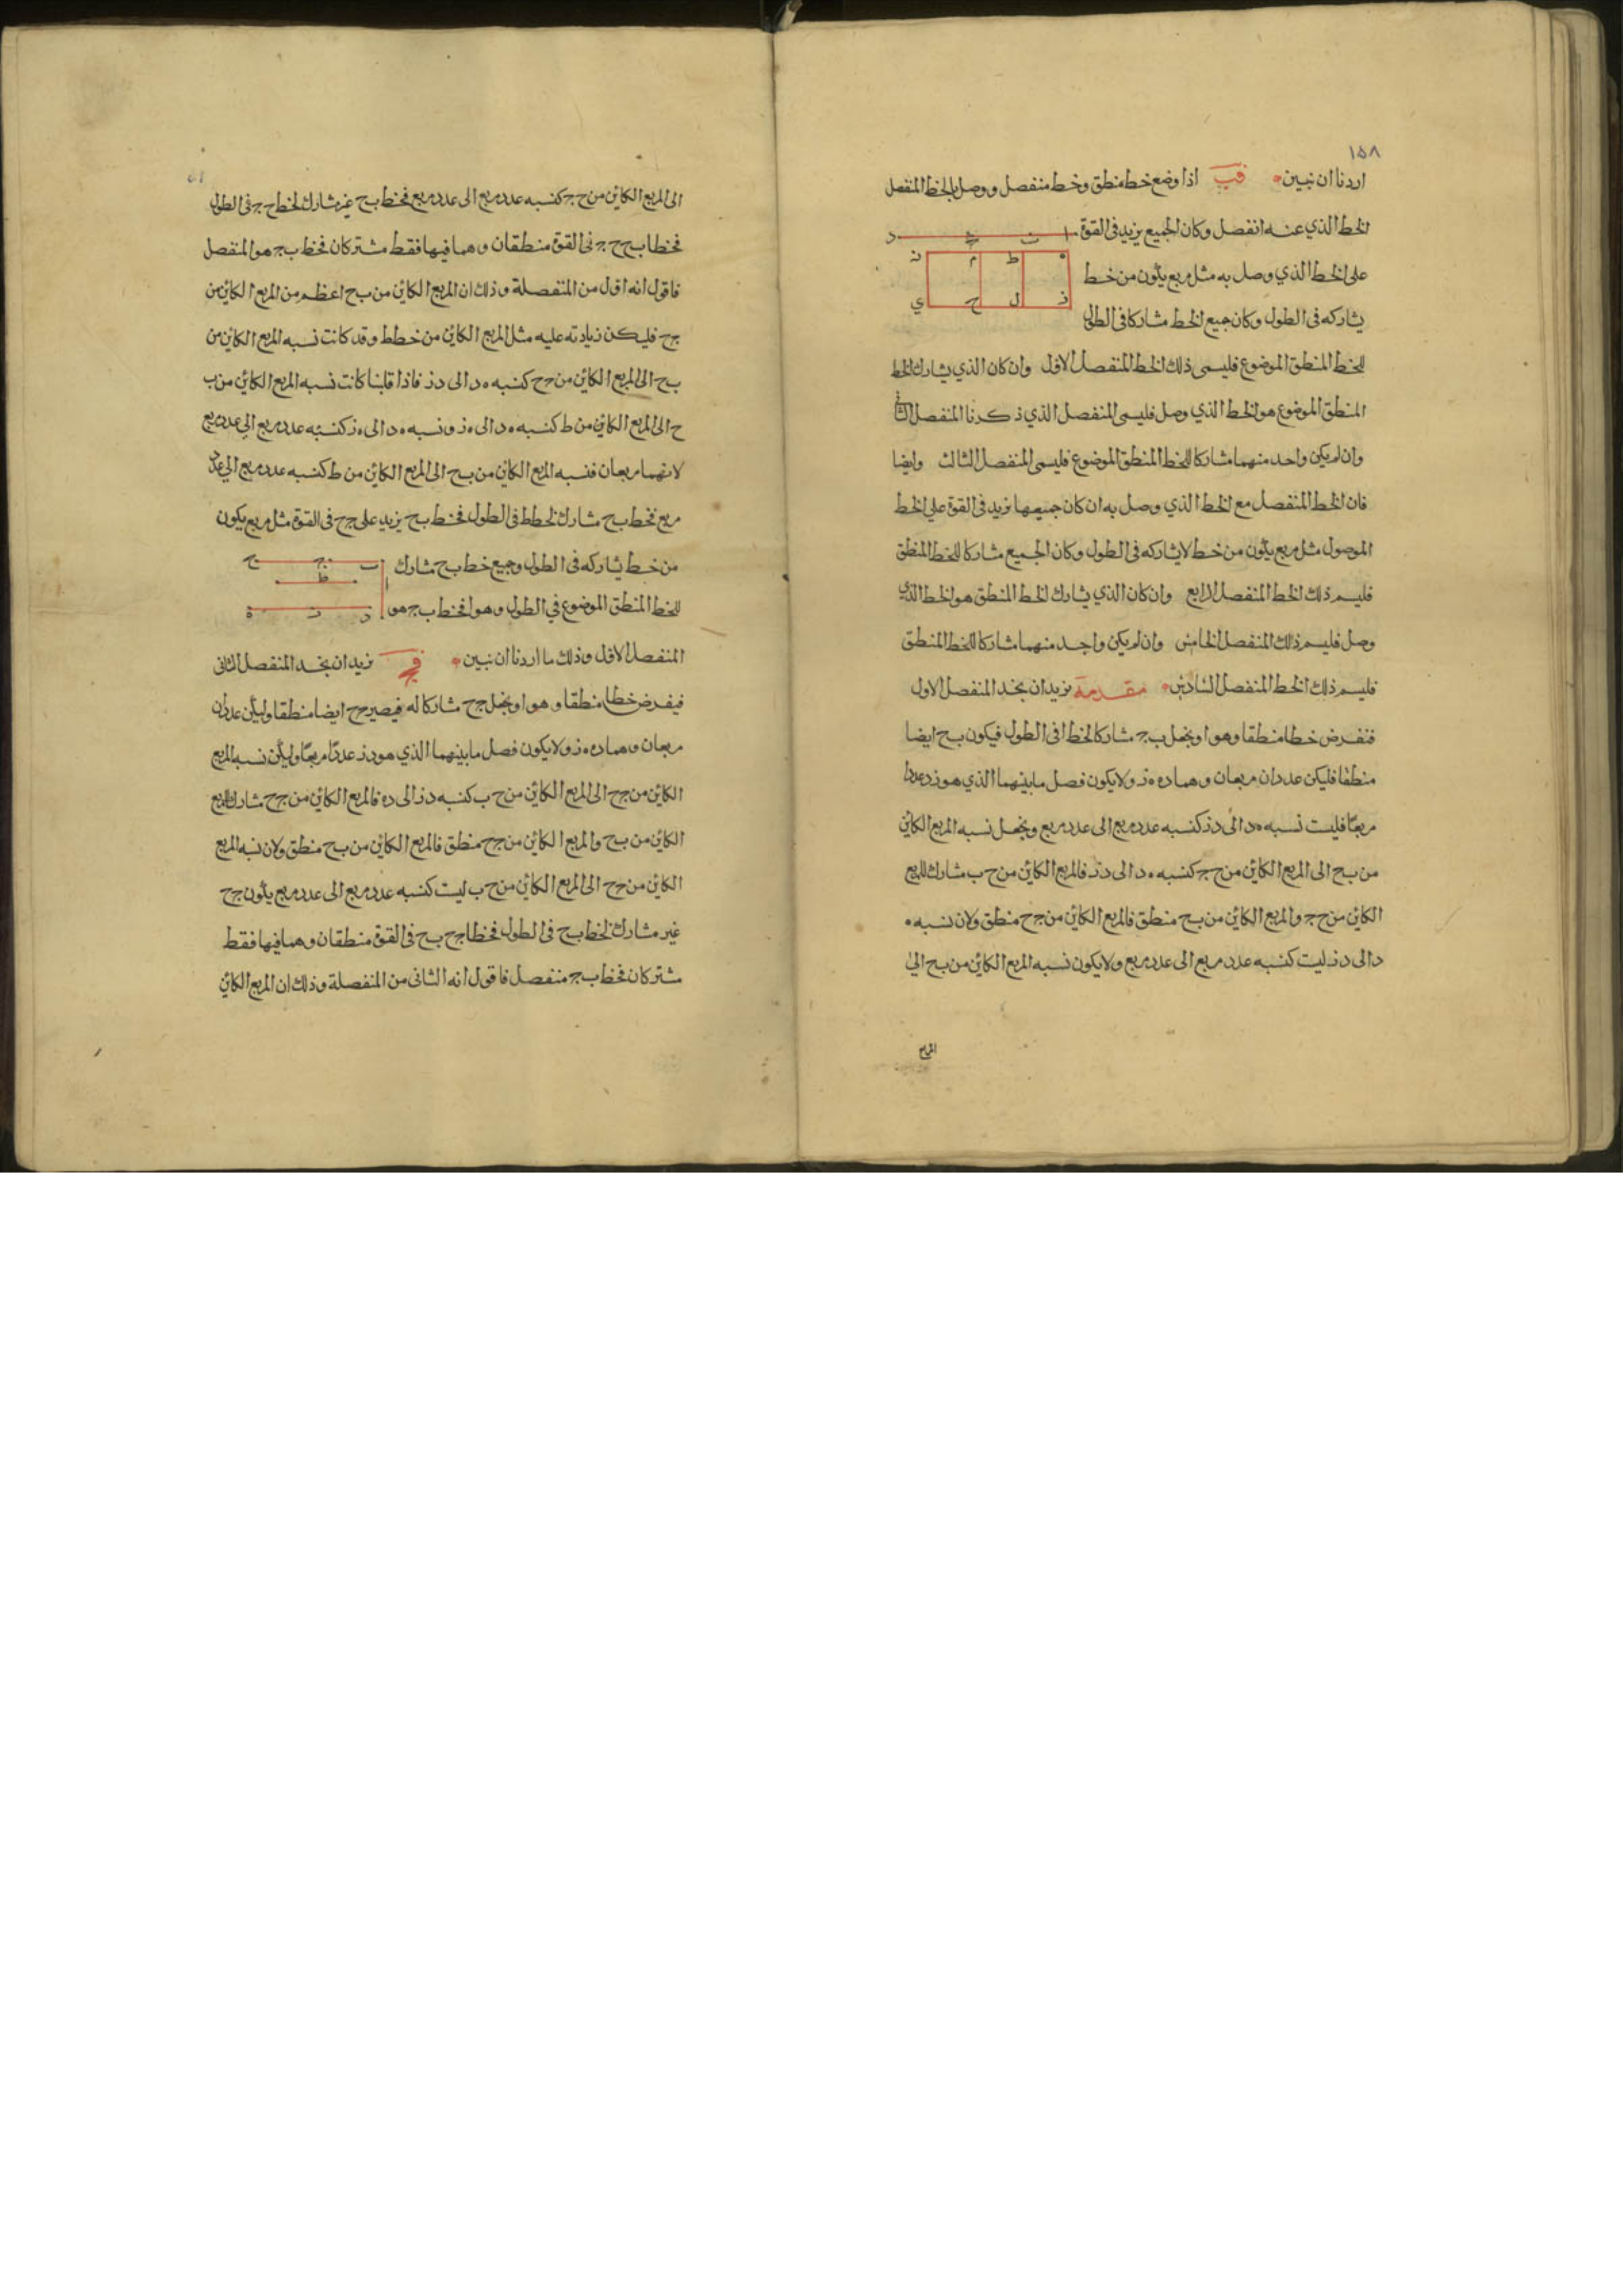 ١٥٨
اردنا ان نبين قب اذا وضع خط منطق وخط منفصل ووصل بالخط المنفصل
الخط الذي عنه انفصل وكان الجميع يزيد في القوة
ا ب ج د
على الخط الذي وصل به مثل مربع يكون من خط
ه ط م ن
يشاركه في الطول وكان جميع الخط مشاركا في الطول
ز ل ح ي
للخط المنطق الموضوع فليسمى ذلك الخط المنفصل الاول وان كان الذي يشارك الخط
المنطق الموضوع هو الخط الذي وصل فليسمى المنفصل الذي ذكرنا المنفصل الثاني
وان لم يكن واحد منهما مشاركا للخط المنطق الموضوع فليسمى المنفصل الثالث وايضا
فان الخط المنفصل مع الخط الذي وصل به ان كان جميعها تزيد في القوة على الخط
الموصول مثل مربع يكون من خط لا يشاركه في الطول وكان الجميع مشاركا للخط المنطق
فليسم ذلك الخط المنفصل الرابع وان كان الذي يشارك الخط المنطق هو الخط الذي
وصل فليسم ذلك المنفصل الخامس وان لم يكن واحد منهما مشاركا للخط المنطق
فليسم ذلك الخط المنفصل السادس مقدمة نريد ان نجد المنفصل الاول
فنفرض خطا منطقا وهو ا ونجعل ب ج مشاركا لخط ا في الطول فيكون ب ح ايضا
منطقا فليكن عددان مربعان وهما د ه ه ز ولا يكون فصل ما بينهما الذي هو ز د عددا
مربعا فليست نسبه ه د الى د ز كنسبه عدد مربع الى عدد مربع ونجعل نسبه المربع الكائن
من ب ح الى المربع الكائن من ح ج كنسبه ه د الى د ز فالمربع الكائن من ح ب مشارك للمربع
الكائن من ح ج والمربع الكائن من ب ح منطق فالمربع الكائن من ج ح منطق ولان نسبه ه
د الى د ز ليست كنسبه عدد مربع الى عدد مربع ولا يكون نسبه المربع الكائن من ب ح الى
المربع
الى المربع الكائن من ح ج كنسبه عدد مربع الى عدد مربع فخط ب ح غير مشارك لخط ح ج في الطول
فخطا ب ح ح ج في القوة منطقان وهما فيها فقط مشتركان فخط ب ج هو المنفصل
فاقول انه اول من المنفصلة وذلك ان المربع الكائن من ب ح اعظم من المربع الكائن من
ج ح فليكن زيادته عليه مثل المربع الكائن من خط ط وقد كانت نسبه المربع الكائن من
ب ح الى المربع الكائن من ح ج كنسبه ه د الى د ز فاذا قلبنا كانت نسبه المربع الكائن من ب
ح الى المربع الكائن من ط كنسبه ه د الى ه ز ونسبه ه د الى ه ز كنسبه عدد مربع الى عدد مربع
لانهما مربعان فنسبه المربع الكائن من ب ح الى المربع الكائن من ط كنسبه عدد مربع الى عدد
مربع فخط ب ح مشارك لخط ط في الطول فخط ب ح يزيد على ج ح في القوة مثل مربع يكون
من خط يشاركه في الطول وجميع خط ب ح مشارك
ب ج ح
ط
للخط المنطق الموضوع في الطول وهو ا فخط ب ج هو
ا
د ز ه
المنفصل الاول وذلك ما اردنا ان نبين قج نريد ان نجد المنفصل الثاني
فيفرض خطا منطقا وهو ا ونجعل ج ح مشاركا له فيصير ج ح ايضا منطقا وليكن عددان
مربعان وهما د ه ه ز ولا يكون فصل ما بينهما الذي هو د ز عددا مربعا وليكن نسبه المربع
الكائن من ج ح الى المربع الكائن من ح ب كنسبه د ز الى د ه فالمربع الكائن من ج ح مشارك للمربع
الكائن من ب ح والمربع الكائن من ج ح منطق فالمربع الكائن من ب ح منطق ولان نسبه المربع
الكائن من ج ح الى المربع الكائن من ح ب ليست كنسبه عدد مربع الى عدد مربع يكون ج ح
غير مشارك لخط ب ح في الطول فخطا ج ح ب ح في القوة منطقان وهما فيها فقط
مشتركان فخط ب ج منفصل فاقول انه الثاني من المنفصلة وذلك ان المربع الكائن